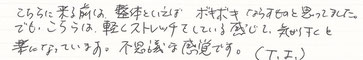 こちらに来る前は、整体といえば ボキボキ ならすものと思ってました。
でも、こちらは、軽くストレッチしている感じで、気が付くと
楽になっています。不思議な感覚です。(T.I.)